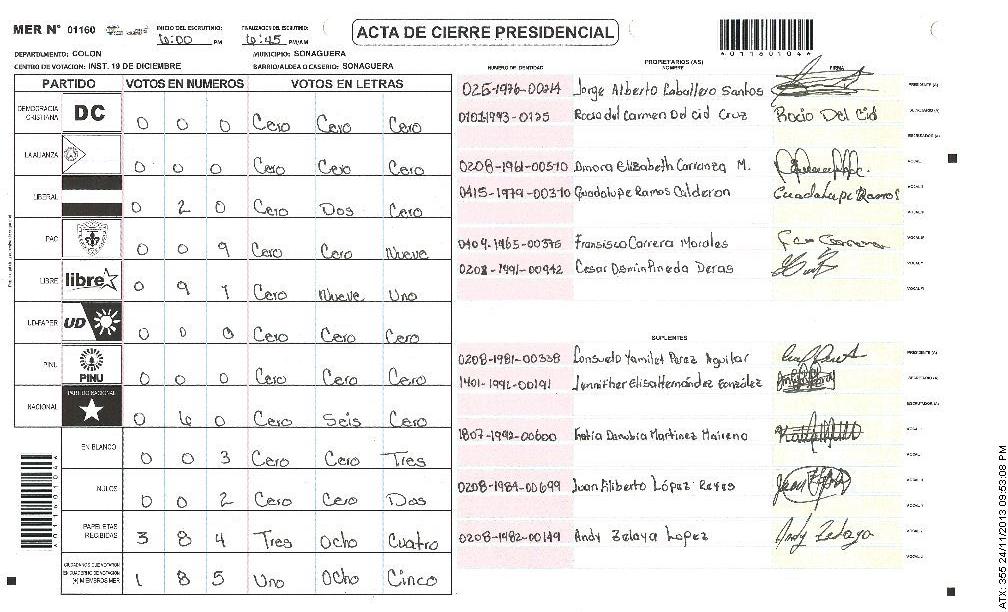 MER N° 01160 INICIO DEL ESCRUTINIO: 6:00 PM FINALIZACION DEL ESCRUTINIO: 6:45 PM/AM
ACTA DE CIERRE PRESIDENCIAL
DEPARTAMENTO: COLON MUNICIPIO: SONAGUERA
CENTRO DE VOTACION: INST. 19 DE DICIEMBRE BARRIO/ALDEA O CASERIO: SONAGUERA
PARTIDO VOTOS EN NUMEROS VOTOS EN LETRAS
DEMOCRACIA CRISTIANA DC 0 0 0 Cero Cero Cero
LA ALIANZA 0 0 0 Cero Cero Cero
LIBERAL 0 2 0 Cero Dos Cero
PAC 0 0 9 Cero Cero Nueve
LIBRE libre 0 9 1 Cero Nueve Uno
UD-FAPER UD 0 0 0 Cero Cero Cero
PINU PINU 0 0 0 Cero Cero Cero
NACIONAL PARTIDO NACIONAL 0 6 0 Cero Seis Cero
EN BLANCO 0 0 3 Cero Cero Tres
NULOS 0 0 2 Cero Cero Dos
PAPELETAS RECIBIDAS 3 8 4 Tres Ocho Cuatro
CIUDADANOS QUE VOTARON EN CUADERNO DE VOTACION (+) MIEMBROS MER 1 8 5 Uno Ocho Cinco
PROPIETARIOS (AS)
NUMERO DE IDENTIDAD NOMBRE FIRMA
Jorge Alberto Caballero Santos PRESIDENTE (A)
Rocio del Carmen Del cid Cruz Rocio Del Cid SECRETARIO (A)
ESCRUTADOR (A)
0208-1961-00510 Elizabeth Carranza M.
0415-1979-00310 Guadalupe Ramos Calderon Guadalupe Ramos
Fransisco Carrera Morales
0208-1991-00942 Cesar Pineda Deras
SUPLENTES
0208-1981-00338 Consuelo Yamilet Perez Aguilar PRESIDENTE (A)
1401-1992-00191 Jennifher Elisa Hernández González SECRETARIO (A)
ESCRUTADOR (A)
1807-1992-00600 Katia Danubia Martinez Maireno
0208-1984-00699 Juan Filiberto López Reyes
0208-1982-00149 Andy Zelaya Lopez Andy Zelaya
ATX: 355 24/11/2013 09:53:08 PM